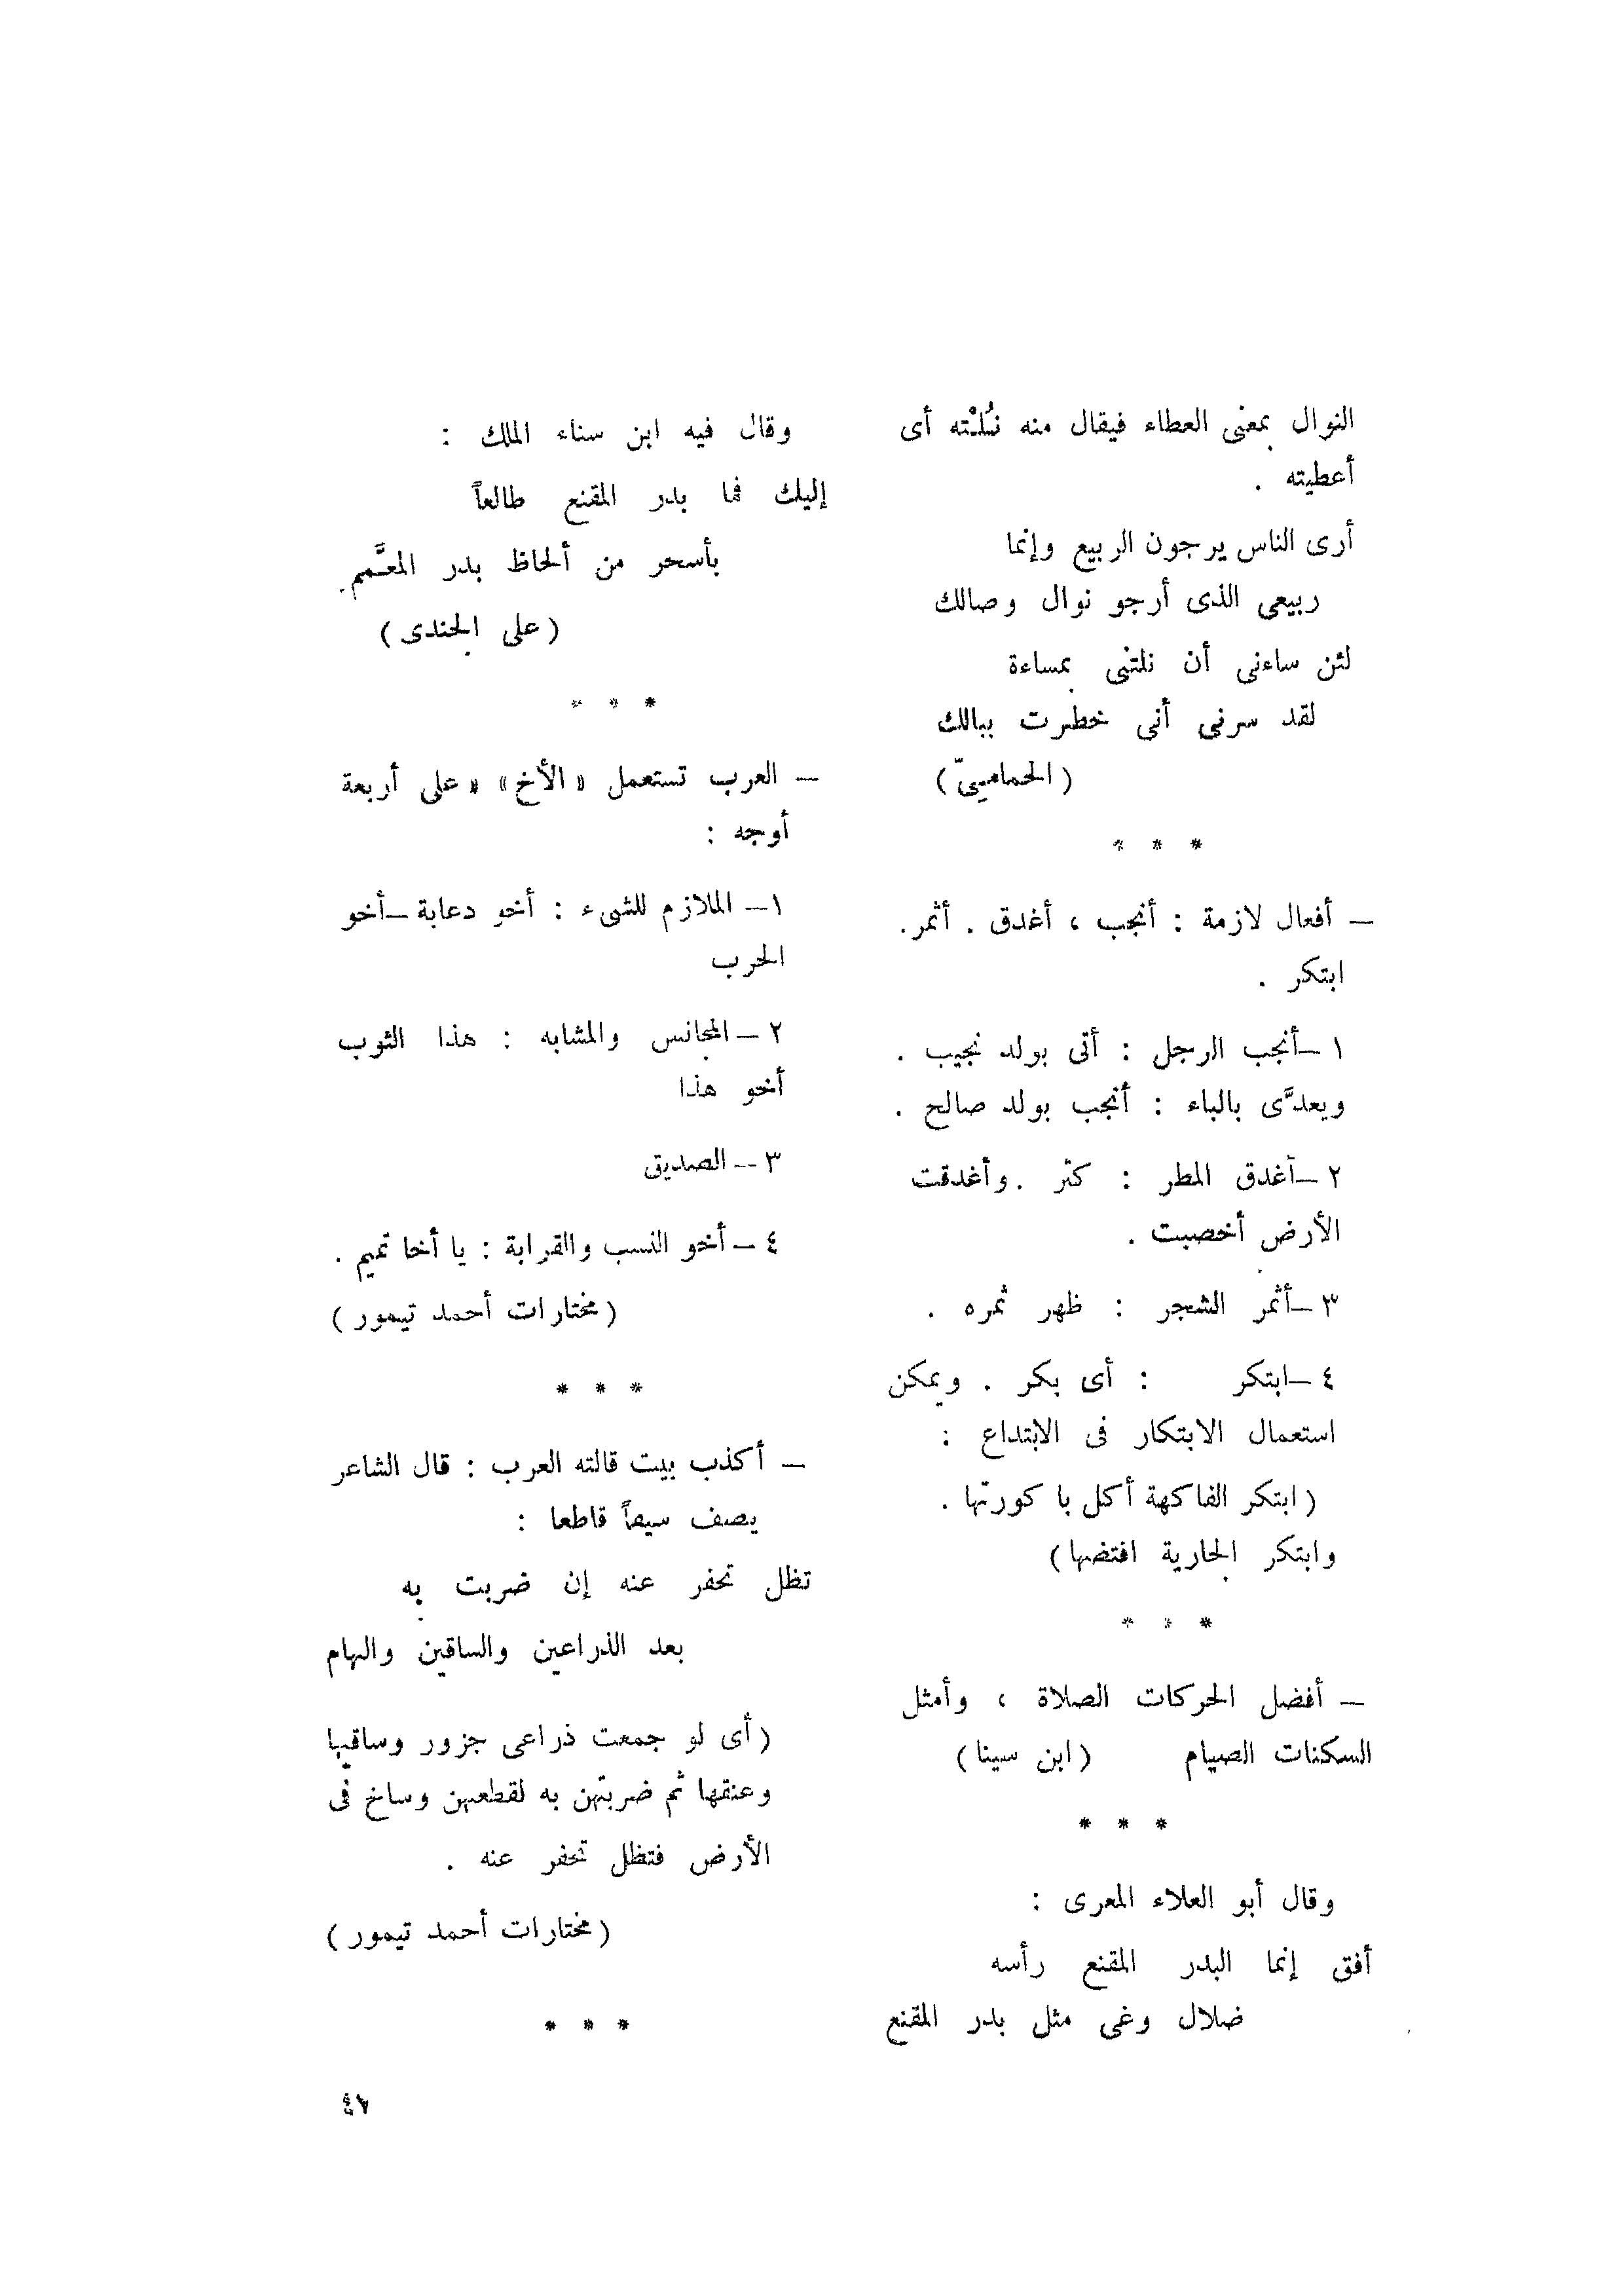 النوال بمعنى العطاء فيقال منه نُلْته أى
أعطيته .
أرى الناس يرجون الربيع وإنما
ربيعى الذى أرجو نوال وصالك
لئن ساءنى أن نلتنى بمساءة
لقد سرنى أنى خطرت ببالك
( الحماميىّ )
* * *
— أفعال لازمة : أنجب ، أغدق . أثمر .
ابتكر .
١ —أنجب الرجل : أتى بولد نجيب .
ويعدَّى بالباء : أنجب بولد صالح .
٢ —أغدق المطر : كثر . وأغدقت
الأرض أخصبت .
٣ —أثمر الشجر : ظهر ثمره .
٤ —ابتكر : أى بكر . ويمكن
استعمال الابتكار فى الابتداع :
( ابتكر الفاكهة أكل باكورتها .
وابتكر الجارية افتضها )
* * *
— أفضل الحركات الصلاة ، وأمثل
السكنات الصيام ( ابن سينا )
* * *
وقال أبو العلاء المعرى :
أفق إنما البدر المقنع رأسه
ضلال وغى مثل بدر المقنع
وقال فيه ابن سناء الملك :
إليك فما بدر المقنع طالعاً
بأسحر من ألحاظ بدر المعمَّم .
( على الجندى )
* * *
— العرب تستعمل « الأخ » « على أربعة
أوجه :
١ — الملازم للشىء : أخو دعابة —أخو
الحرب
٢ —المجانس والمشابه : هذا الثوب
أخو هذا
٣ —الصديق
٤ —أخو النسب واالقرابة : يا أخا تميم .
( مختارات أحمد تيمور )
* * *
— أكذب بيت قالته العرب : قال الشاعر
يصف سيفاً قاطعا :
تظل تحفر عنه إن ضربت به
بعد الذراعين والساقين والهام
( أى لو جمعت ذراعى جزور وساقيها
وعنقها ثم ضربتهن به لقطعهن وساخ فى
الأرض فتظل تحفر عنه .
( مختارات أحمد تيمور )
* * *